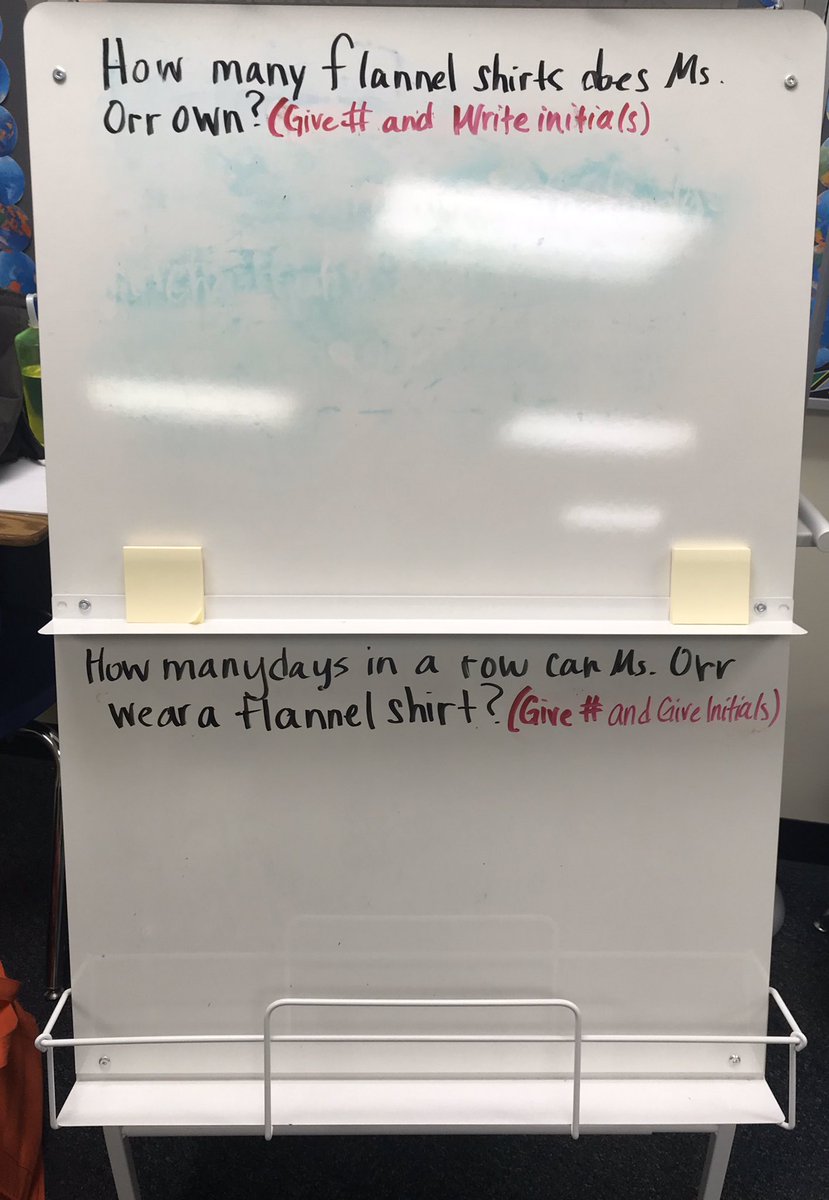 How many flannel shirts does Ms.
Orr own? (Give # and Write initials)
How many days in a row can Ms. Orr
wear a flannel shirt? (Give # and Give Initials)